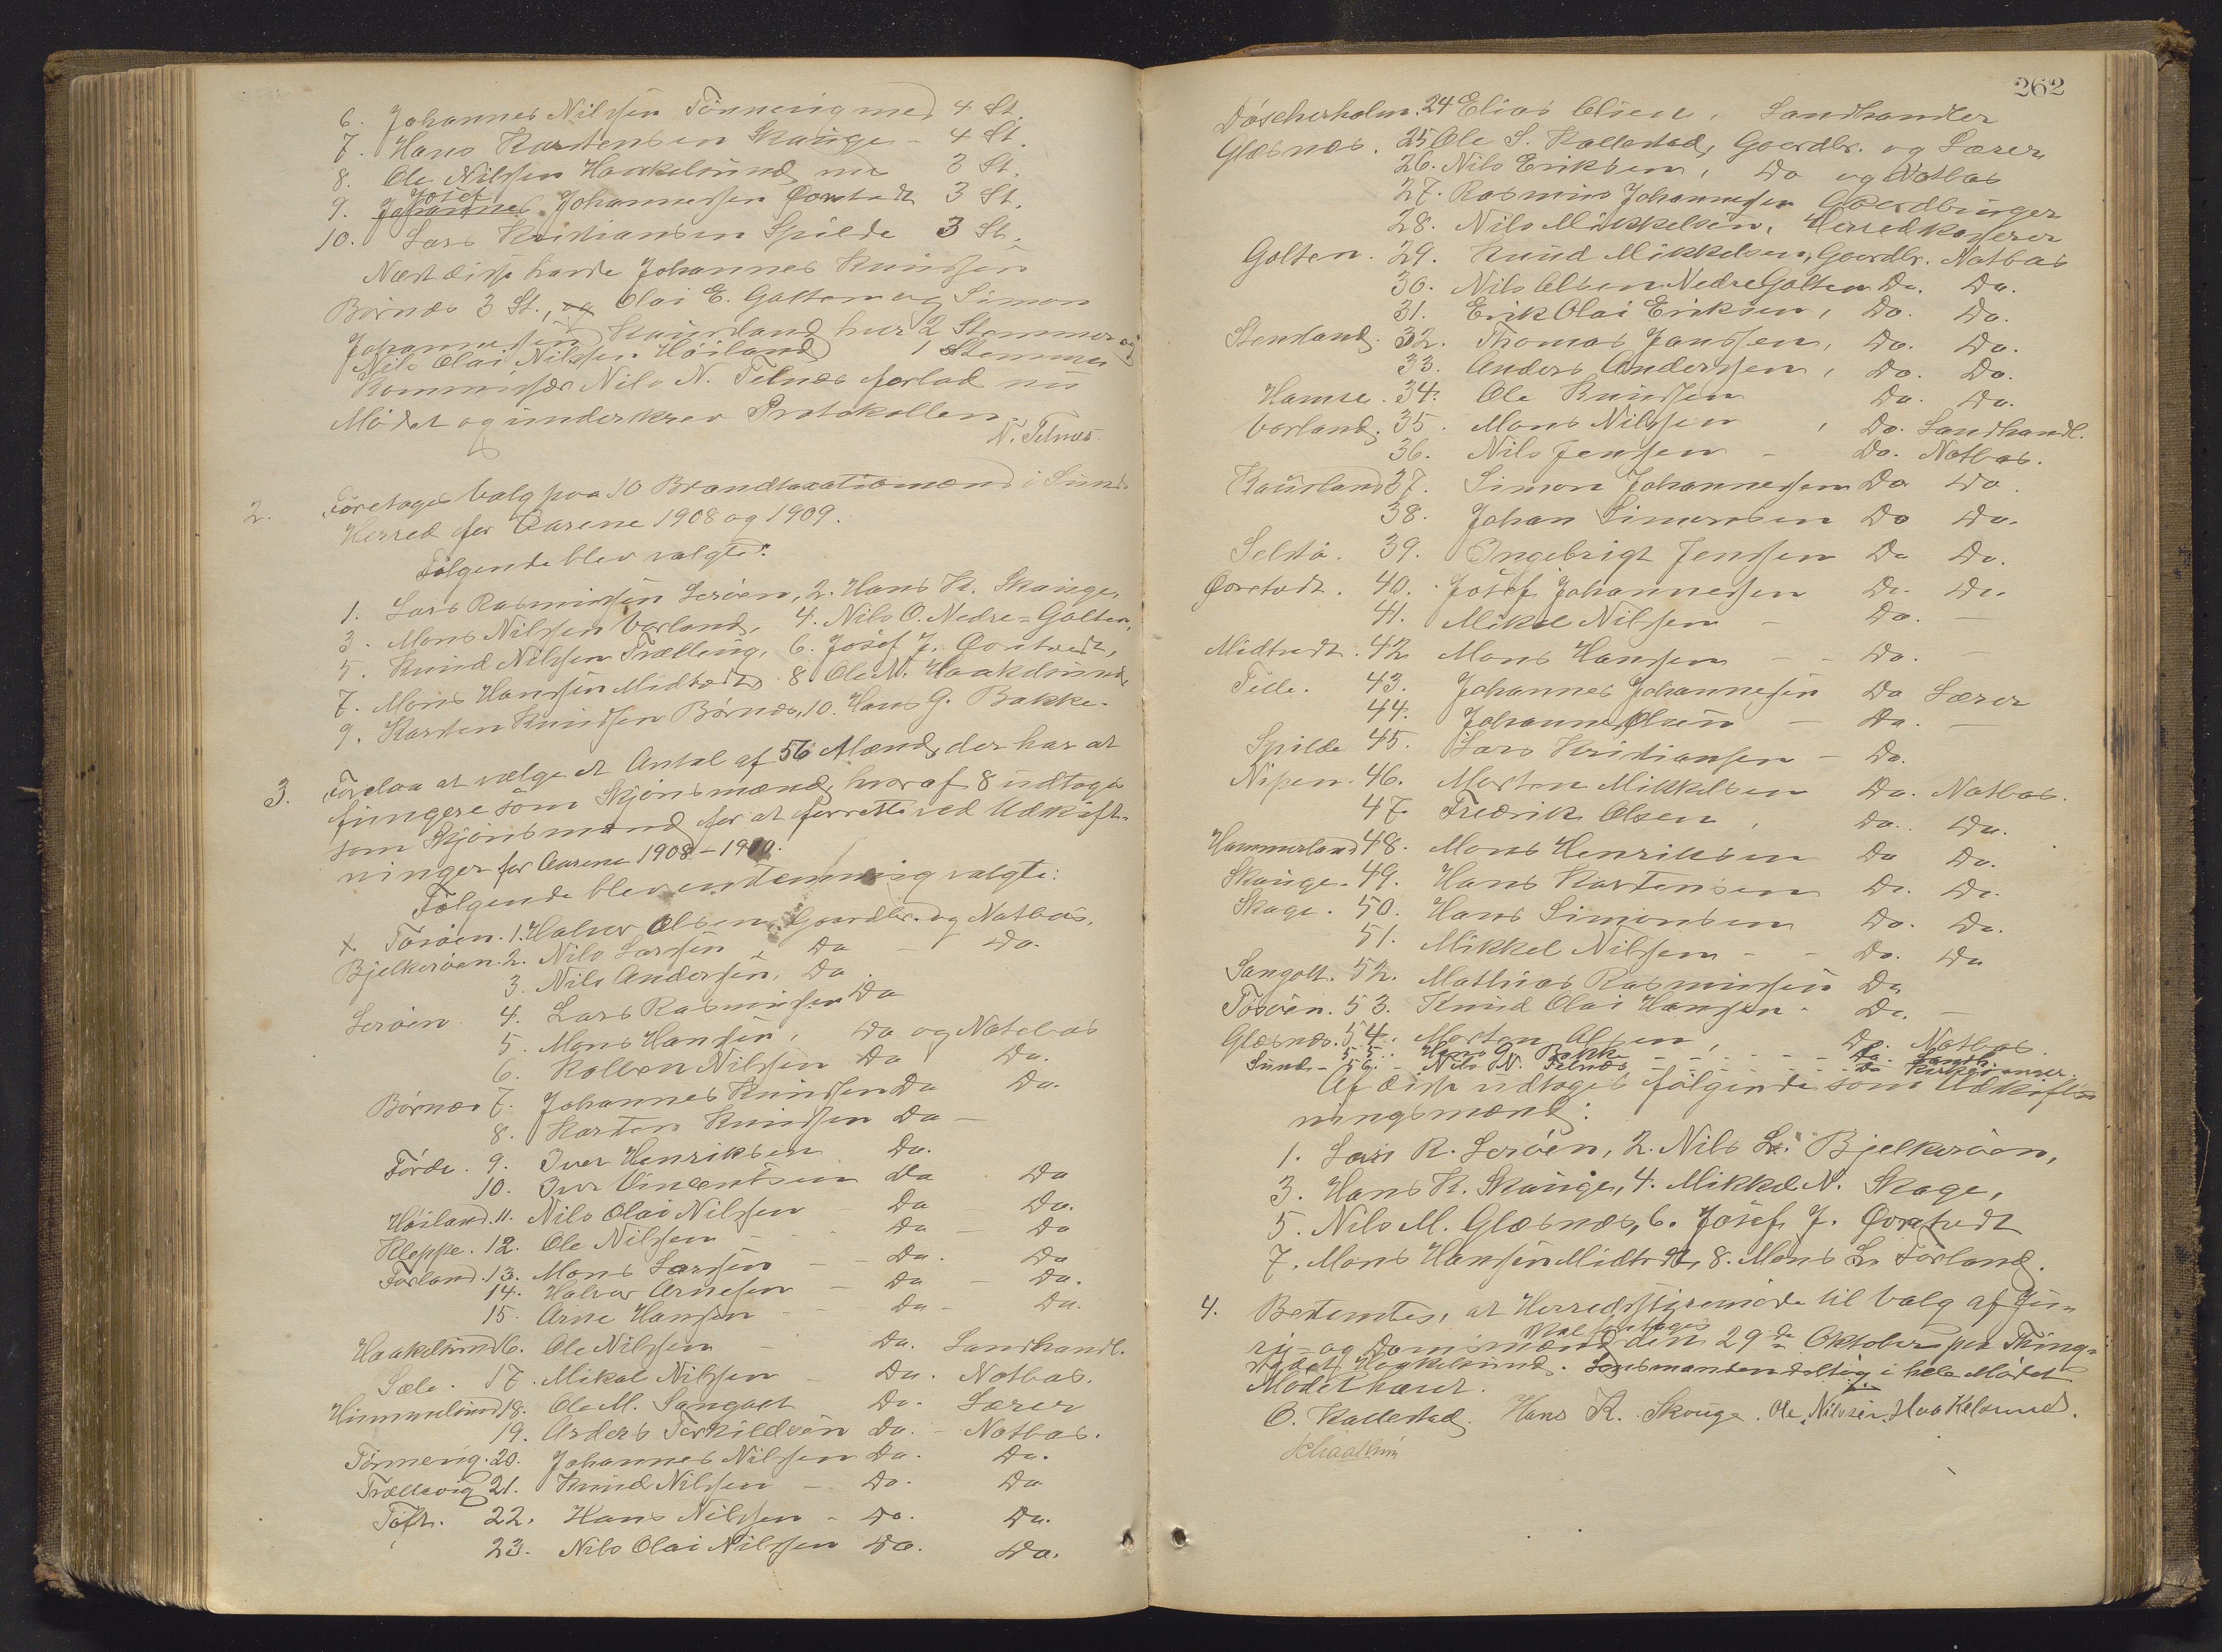 6. Johannes Nilssen Tönnevig med 4 St.
7. Hans Karstensen Skauge - 4 St.
8. Ole Nilssen Haakelsund 3 St.
Josef
9. Johannes Johannessen Qvrtvedt 3 St.
10. Lars Kristiansen Spilde 3 St.
Næst disse havde Johannes Knudsen
Börnæs 3 St., og Olai E. Golten og Simon
Johannessen Kausland hver 2 Stemmer og
Nils Olai Nilssen Höiland 1 Stemme
Kommissær Nils N. Telnæs forlod nu
Mödet og underskrev Protokollen.
N. Telnæs
2. Foretoges Valg paa 10 Brandtaxationsmænd i Sunds
Herred for Aarene 1908 og 1909.
Fölgende blev valgte:
1. Lars Rasmussen Leröen, 2. Hans K. Skauge,
3. Mons Nilssen Vorland, 4. Nils O. Nedre-Golten,
5. Knud Nilssen Trællevig, 6. Josef J. Qvrtvedt,
7. Mons Hanssen Midtvedt 8 Ole N. Haakelsund,
9. Karsten Knudssen Börnæs, 10. Hans G. Bakke.
3. Forelaa at vælge et Antal af 56 Mænd, der har at
fungere som Skjönsmænd, hvoraf 8 udtages
som Skjönsmænd for at forrette ved Udskift-
ninger for Aarene 1908-1910.
Fölgende blev enstemmig valgte:
x Tösöen. 1. Halvor Olsen, Gaardbr. og Notbas.
Bjelkeröen. 2. Nils Larssen Do - Do.
3. Nils Anderssen, Do
Leröen 4. Lars Rasmussen Do
5. Mons Hanssen, Do og Notebas
6. Kolben Nilssen Do Do.
Börnæs 7. Johannes Knudssen Do Do.
8. Karsten Knudssen Do -
Förde. 9. Iver Henriksen Do.
10. Iver Vincentsen Do Do
Höiland. 11. Nils Olai Nilssen - Do Do.
Kleppe. 12. Ole Nilssen - Do - Do
Forland. 13. Mons Larssen - Do. Do
14. Halvor Arnesen - Do - Do.
15. Arne Hanssen - Do - Do.
Haakelsund 16. Ole Nilssen - Do. Landhandl.
Sæle. 17. Mikal Nilssen - Do. Notbas.
Hummelsund 18. Ole M. Sangolt Do. Lærer
19. Anders Torkildsen Do. - Notbas.
Tönnevig. 20. Johannes Nilssen Do. Do.
Trællevig 21. Knud Nilssen - Do. Do
Toft. 22. Hans Nilssen - Do. Do.
23. Nils Olai Nilssen Do. Do.
262
Döscherholm. 24 Elias Olsen, Landhandler
Glæsnæs. 25 Ole S. Kallestad, Gaardbr. og Lærer
26. Nils Eriksen, Do og Notbas
27. Rasmus Johannessen Gaardbruger
28. Nils Mikkelsen, Herredskasserer
Golten. 29. Knud Mikkelsen, Gaardbr. Notbas
30. Nils Olsen Nedre Golten Do. Do.
31. Erik Olai Eriksen, Do. Do.
Stenland. 32. Thomas Janssen, Do. Do.
33. Anders Anderssen, Do. Do.
Hamre. 34. Ole Knudssen Do. Do.
Vorland. 35. Mons Nilssen, Do. Landhandl.
36. Nils Jenssen - Do. Notbas.
Kausland 37. Simon Johannessen Do Do.
38. Johan Simonsen Do Do.
Selstö. 39. Ingebrigt Jenssen Do Do.
Qvrtvedt. 40. Josef Johannessen Do. Do.
41. Mikal Nilssen - Do. -
Midtvedt. 42 Mons Hanssen - - Do. -
Telle. 43. Johannes Johannessen Do Lærer
44. Johannes Olsen - Do. -
Spilde 45. Lars Kristiansen - Do.
Nipen. 46. Morten Mikkelsen Do. Notbas.
47. Fredrik Olsen, Do. Do.
Hammersland 48. Mons Henriksen Do Do.
Skauge. 49. Hans Karstensen Do. Do.
Skage. 50. Hans Simonsen Do. Do.
51. Mikkel Nilssen - - Do. Do
Sangolt. 52. Mathias Rasmussen Do
Tösöen. 53. Knud Olai Hanssen - Do. -
Glæsnæs. 54. Morten Olsen, Do. Notbas.
55. Hans G. Bakke - - - Do. Landh.
Sund - 56. Nils N. Telnæs, - - - Do Kirkesanger.
Af disse udtoges fölgende som Udskift-
ningsmænd:
1. Lars R. Leröen, 2. Nils L. Bjelkeröen,
3. Hans K. Skauge, 4. Mikkel N. Skage,
5. Nils M. Glæsnæs, 6. Josef J. Qvrtvedt
7. Mons Hanssen Midtvedt, 8. Mons L. Forland.
4. Bestemtes, at Herredsstyremöde til Valg af Ju-
skal foretages
ry- og Domsmænd den 29de Oktober paa Thing-
stedet Haakelsund. Lensmanden deltog i hele Mödet
Mödet hævet.
O. Kallestad. Hans K. Skauge. Ole Nilssen Haakelsund.